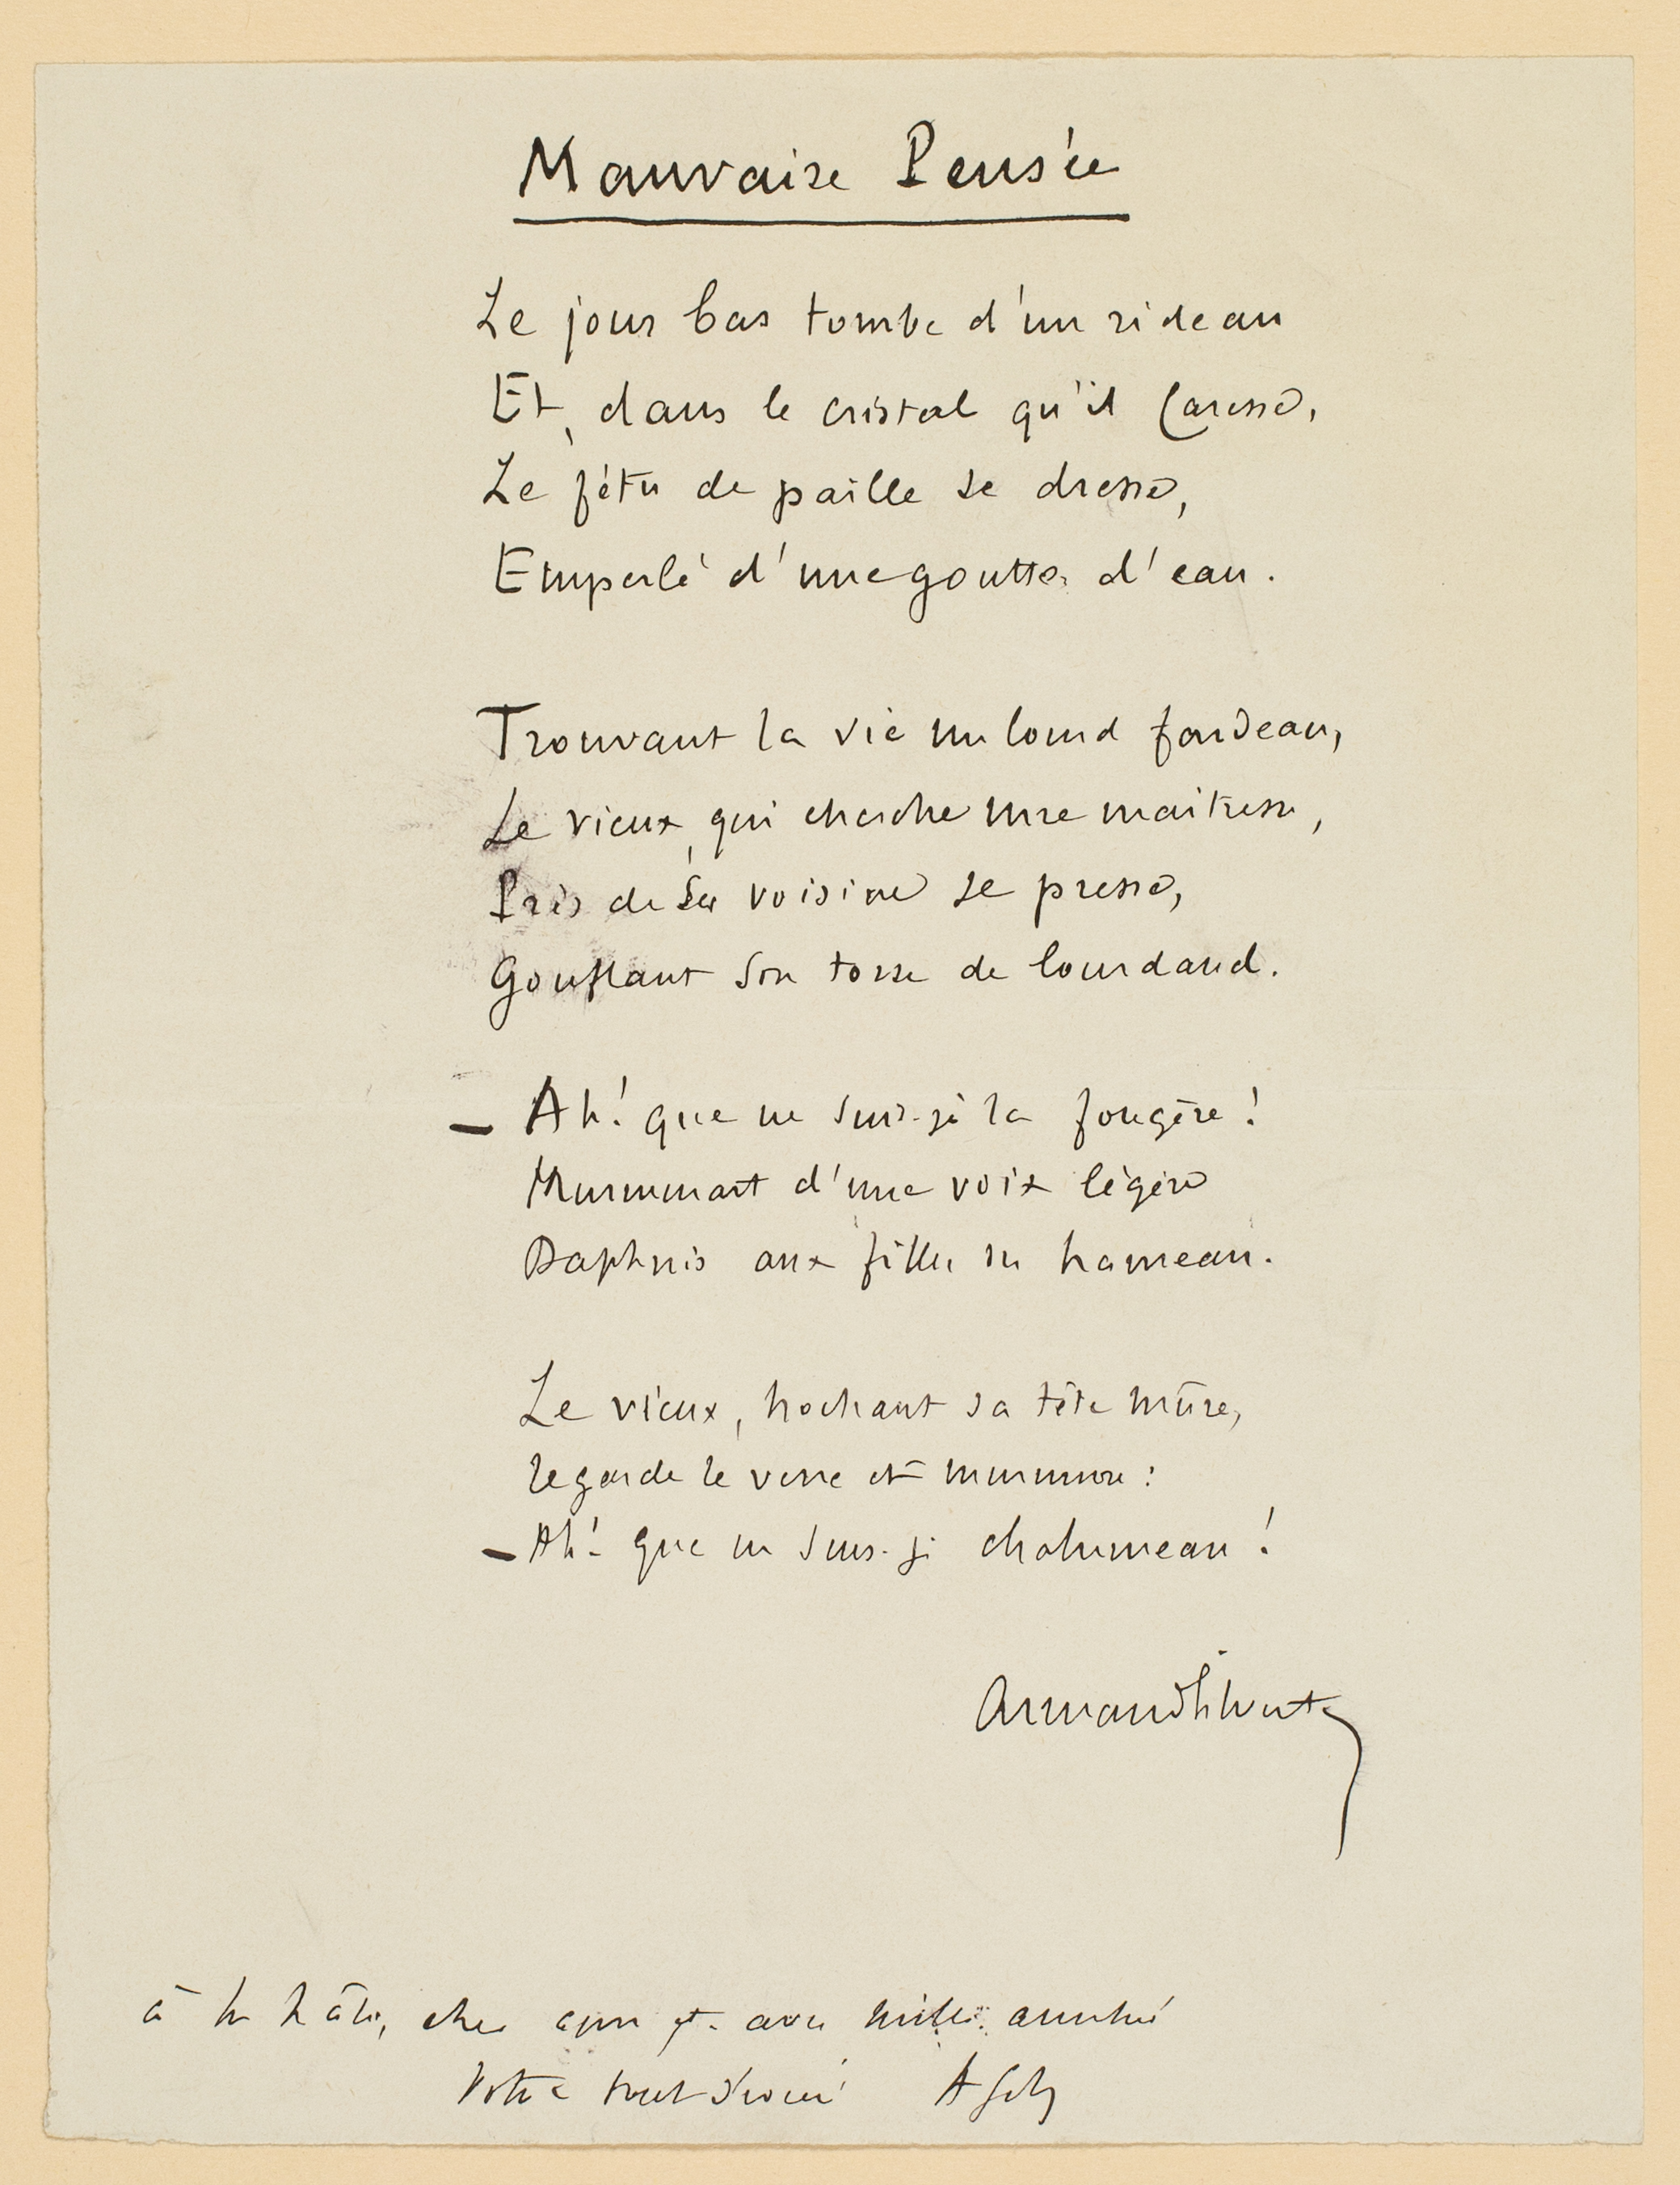 Mauvaise Pensée
Le jour bas tombe d'un rideau
Et, dans le cristal qu'il caresse,
Le fétu de paille se dresse,
Emperlé d'une goutte d'eau.
Trouvant la vie un lourd fardeau,
Le vieux, qui cherche une maitresse,
Près de sa voisine se presse,
Gonflant son torse de lourdaud.
— Ah! que ne suis-je la fougère!
Murmurait d'une voix légère
Daphnis aux filles du hameau.
Le vieux, hochant sa tête mûre,
regarde le verre et murmure :
— Ah! que ne suis-je chalumeau!
Armand Silvestre
à la hâte, cher ami et avec mille amitiés
Votre tout dévoué